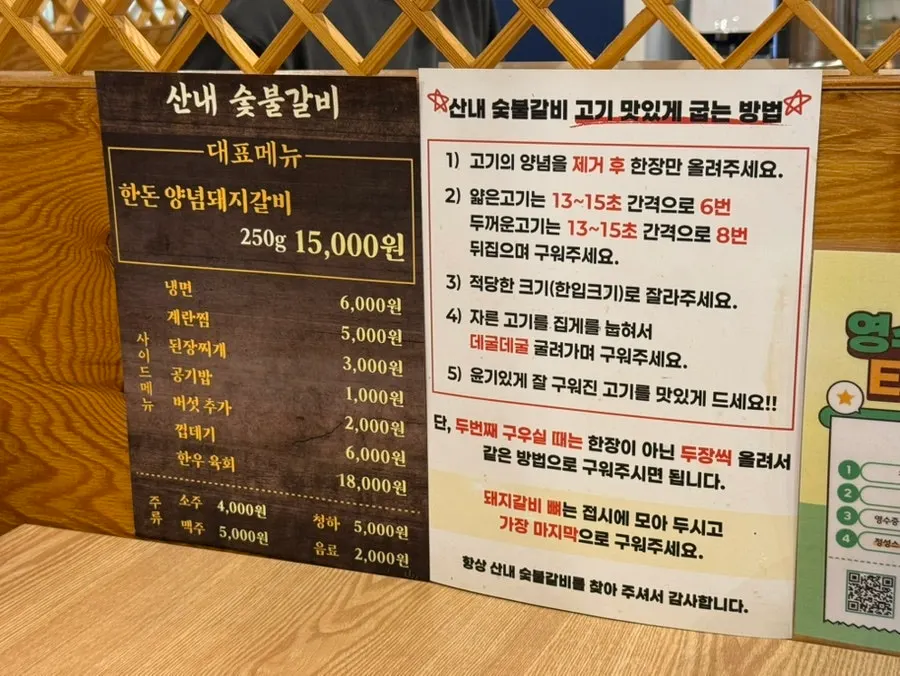 산내 숯불갈비
대표메뉴
한돈 양념돼지갈비
250g 15,000원
사이드메뉴
냉면 6,000원
계란찜 5,000원
된장찌개 3,000원
공기밥 1,000원
버섯 추가 2,000원
껍데기 6,000원
한우 육회 18,000원
주류
소주 4,000원 청하 5,000원
맥주 5,000원 음료 2,000원
산내 숯불갈비 고기 맛있게 굽는 방법
1) 고기의 양념을 제거 후 한장만 올려주세요.
2) 얇은고기는 13~15초 간격으로 6번
두꺼운고기는 13~15초 간격으로 8번
뒤집으며 구워주세요.
3) 적당한 크기(한입크기)로 잘라주세요.
4) 자른 고기를 집게를 눕혀서
데굴데굴 굴려가며 구워주세요.
5) 윤기있게 잘 구워진 고기를 맛있게 드세요!!
단, 두번째 구우실 때는 한장이 아닌 두장씩 올려서
같은 방법으로 구워주시면 됩니다.
돼지갈비 뼈는 접시에 모아 두시고
가장 마지막으로 구워주세요.
항상 산내 숯불갈비를 찾아 주셔서 감사합니다.
1
2
3 영수증
4